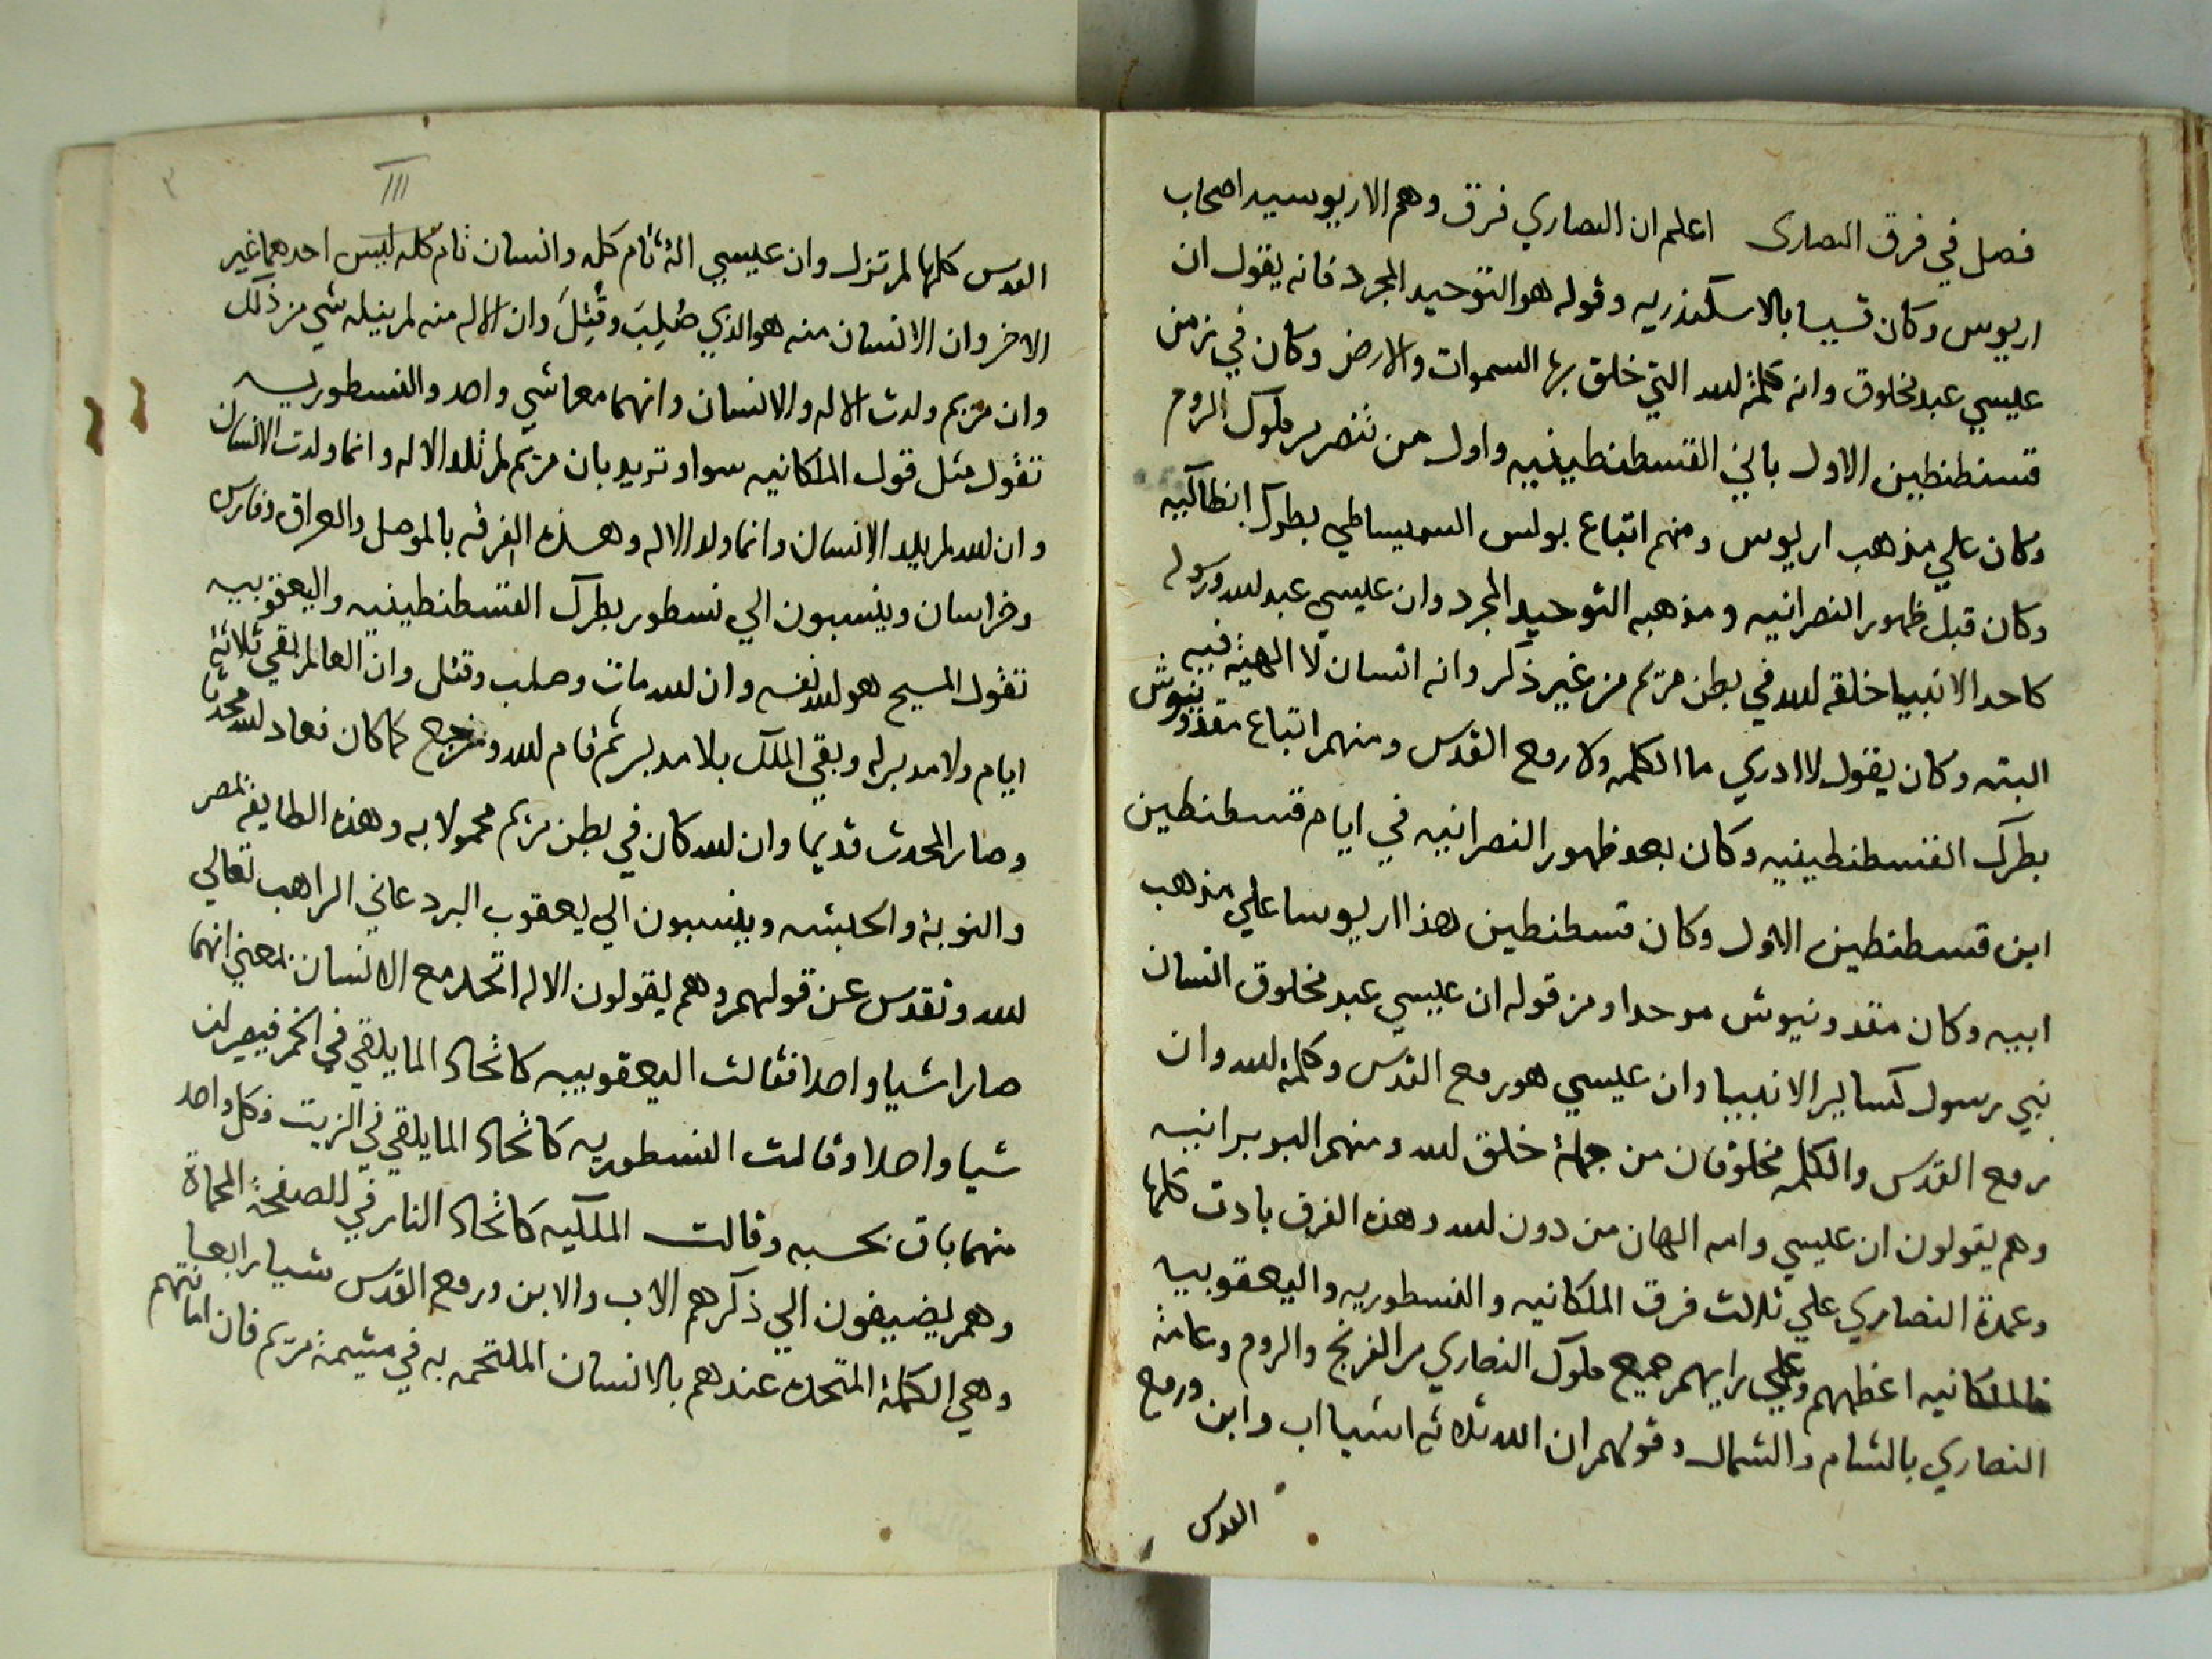 فصل في فرق النصارى اعلم ان النصاري فرق وهم الاريوسيه اصحاب
اريوس وكان قسيسا بالاسكندريه وقوله هو التوحيد المجرد فانه يقول ان
عيسي عبد مخلوق وانه كلمة الله التي خلق بها السموات والارض وكان في زمن
قسنطنطين الاول باني القسطنطينيه واول من تنصر من ملوك الروم
وكان علي مذهب اريوس ومنهم اتباع بولس السميساطي بطرك انطاكيه
وكان قبل ظهور النصرانيه ومذهبه التوحيد المجرد وان عيسي عبد الله ورسوله
كاحد الانبيا خلقه الله في بطن مريم من غير ذكر وانه انسان لا الهية فيه
البته وكان يقول لا ادري ما الكلمه ولا روح القدس ومنهم اتباع مقدونيوش
بطرك القسطنطينيه وكان بعد ظهور النصرانيه في ايام قسطنطين
ابن قسطنطين الاول وكان قسطنطين هذا اريوسا علي مذهب
ابيه وكان مقدونيوش موحدا ومن قوله ان عيسي عبد مخلوق انسان
نبي رسول كساير الانبيا وان عيسي هو روح القدس وكلمة الله وان
روح القدس والكلمه مخلوقان من جملة خلق الله ومنهم البوبرانيه
وهم يقولون ان عيسي وامه الهان من دون الله وهذه الفرق بادت كلها
وعمدة النصاري علي ثلاث فرق الملكانيه والنسطوريه واليعقوبيه
فالملكانيه اعظمهم وعلي رايهم جميع ملوك النصاري من الفرنج والروم وعامة
النصاري بالشام والشمال وقولهم ان الله ثلاثه اشيا اب وابن وروح
القدس
III
٣
القدس كلها لم تزل وان عيسي اله تام كله وانسان تام كله ليس احدهما غير
الاخر وان الانسان منه هو الذي صُلِبَ وقُتِلَ وان الاله منه لم ينله شي من ذلك
وان مريم ولدت الاله والانسان وانهما معا شي واحد والنسطوريه
تقول مثل قول الملكانيه سوا وتزيد بان مريم لم تلد الاله وانما ولدت الانسان
وان الله لم يلد الانسان وانما ولد الاله وهذه الفرقه بالموصل والعراق وفارس
وخراسان وينسبون الي نسطور بطرك القسطنطينيه واليعقوبيه
تقول المسيح هو الله نفسه وان الله مات وصلب وقتل وان العالم بقي ثلاثة
ايام ولا مدبر له وبقي الملك بلا مدبر ثم قام الله ورجع كما كان فعاد الله محدثا
وصار المحدث قديما وان الله كان في بطن مريم محمولا به وهذه الطايفه بمصر
والنوبة والحبشه وينسبون الي يعقوب البردعاني الراهب تعالي
الله وتقدس عن قولهم وهم يقولون الاله اتحد مع الانسان بمعني انهما
صارا شيا واحدا فقالت اليعقوبيه كاتحاد الما يلقي في الخمر فيصيران
شيا واحدا وقالت النسطوريه كاتحاد الما يلقي في الزيت فكل واحد
منهما باق بحسبه وقالت الملكيه كاتحاد النار في الصفيحة المحماة
وهم يضيفون الي ذكرهم الاب والابن وروح القدس شيا رابعا
وهي الكلمة المتحده عندهم بالانسان الملتحمه به في مشيمة مريم فان امانتهم